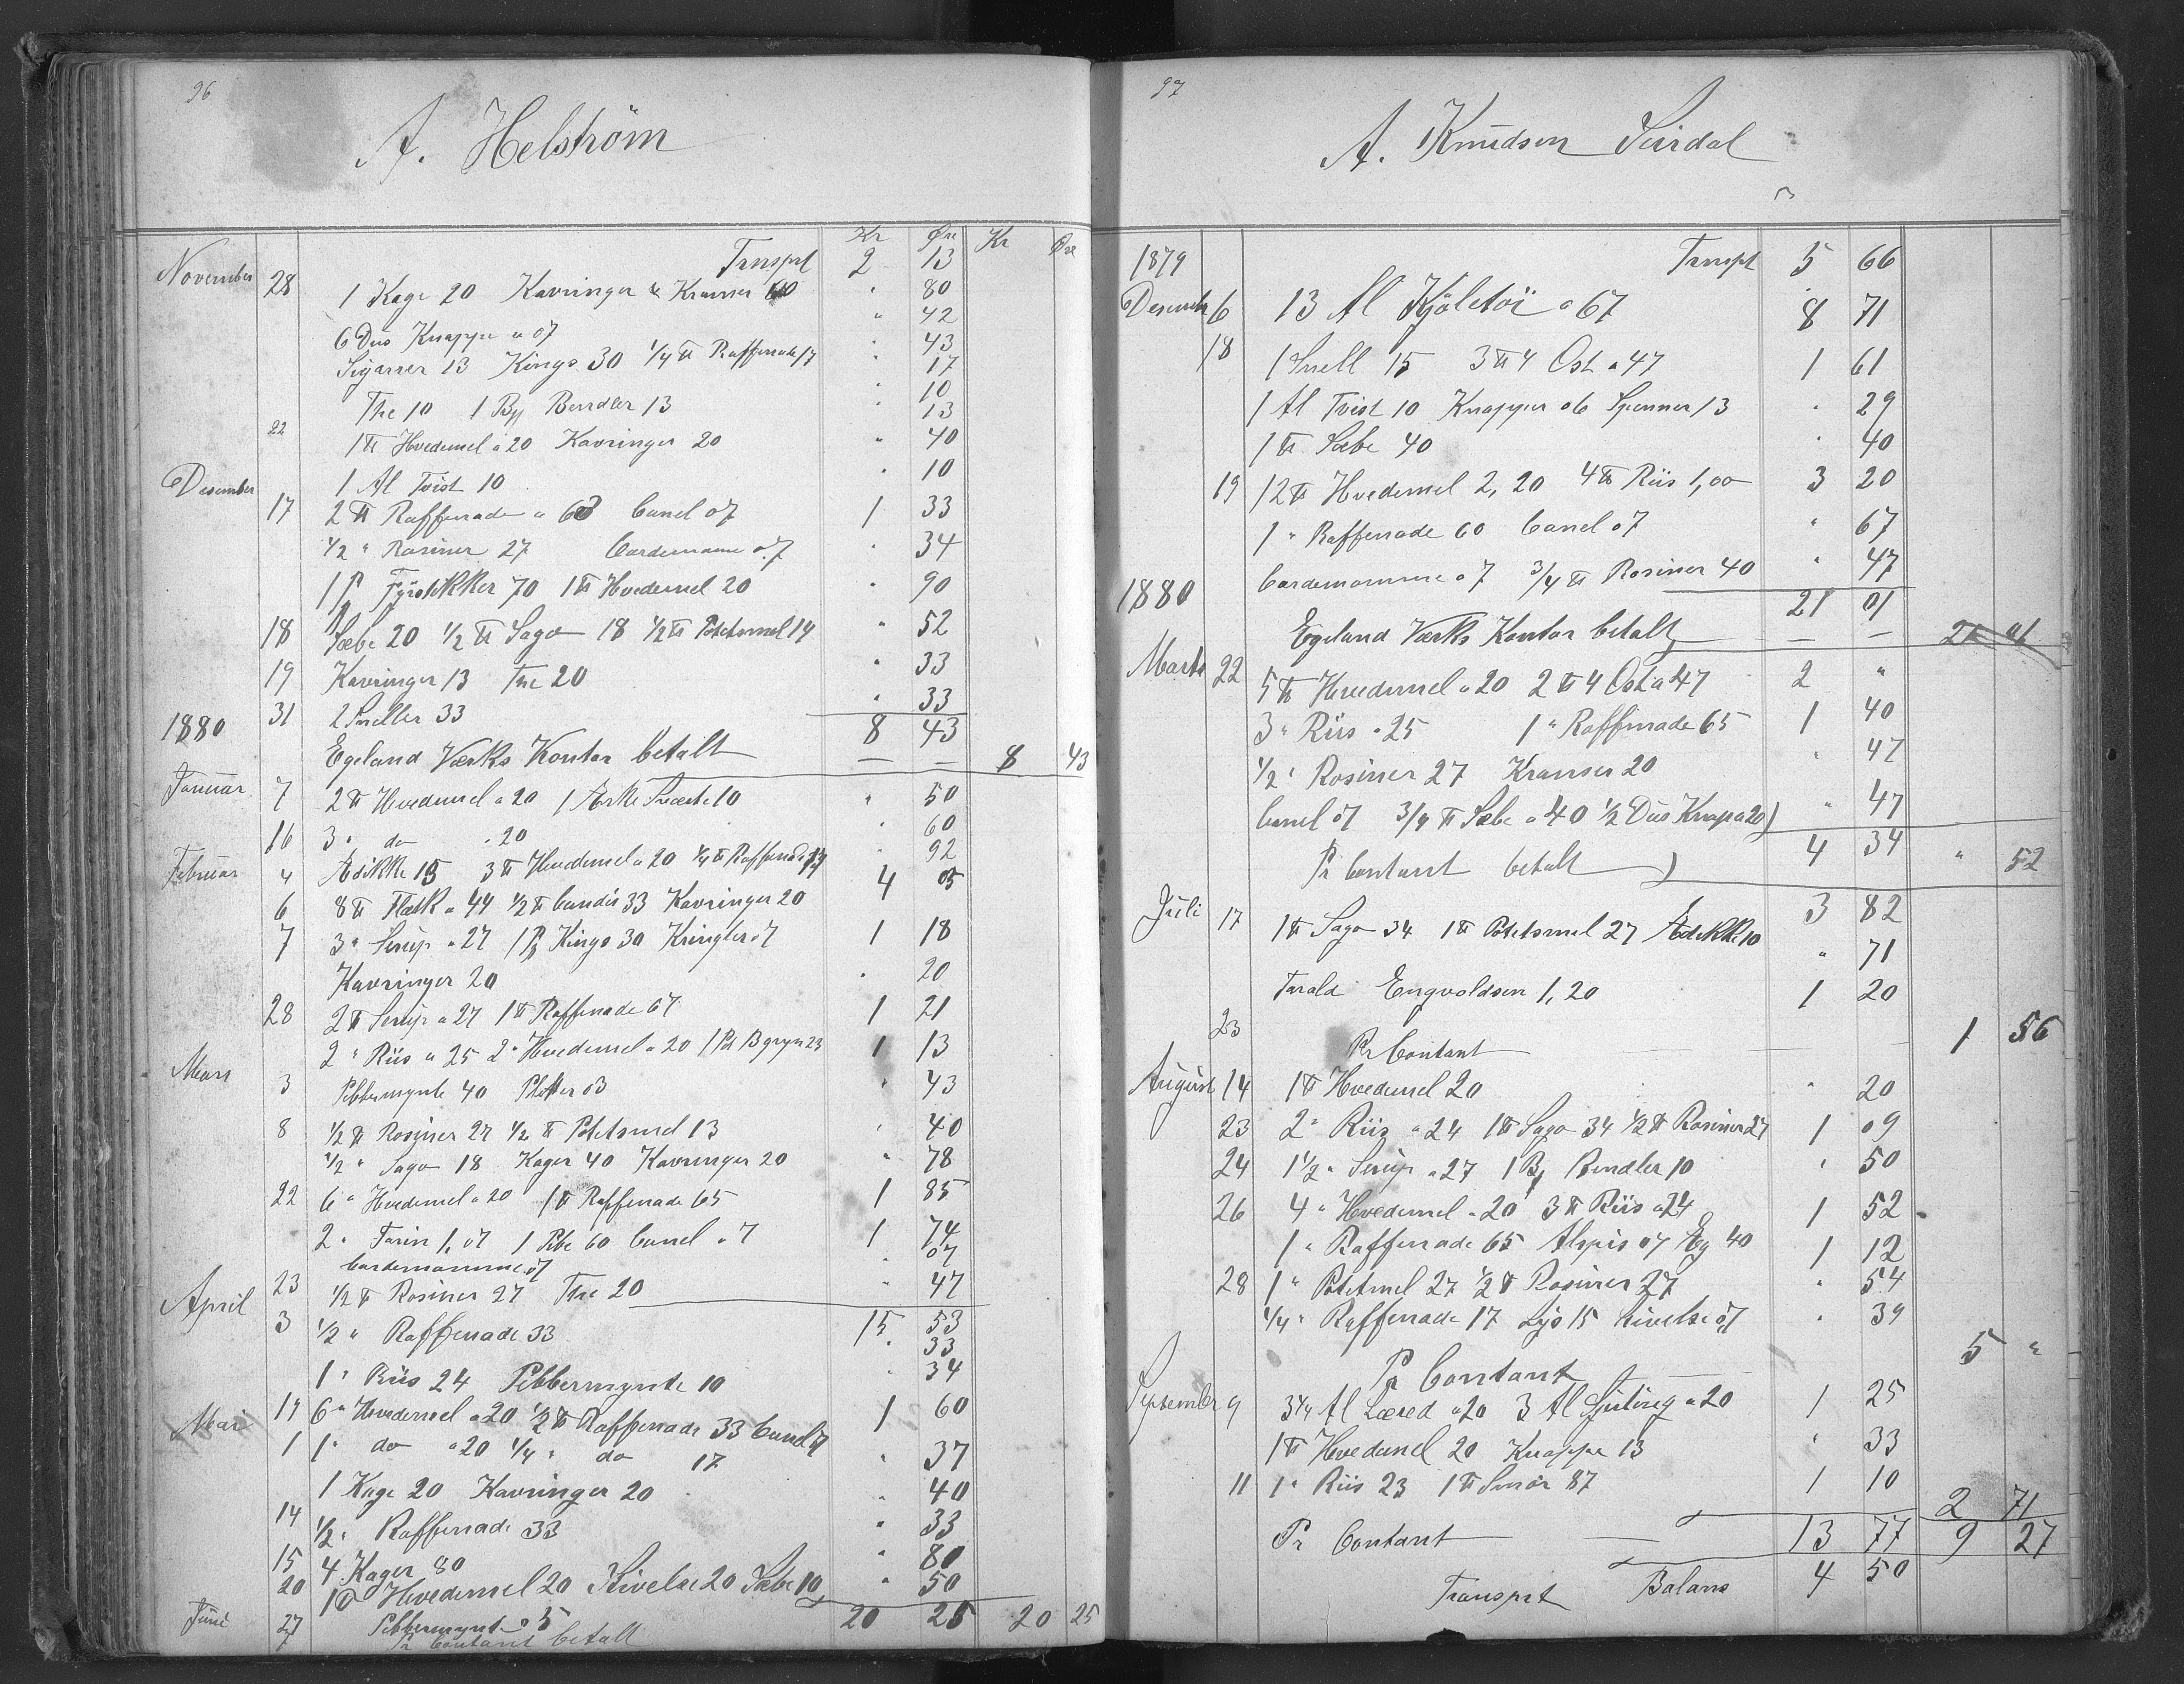 96
A. Helström
Kr Øre Kr Øre
Trnsprt 2 13
November 28 1 Kage 20 Kavringer & Kranser 60 " 80
6 Dus Knappe a 07 " 42
Sigarrer 13 Kings 30 1/4 ℔ Raffenade 17 " 43
17
The 10 1 By Bendler 13 " 10
13
22 1 ℔ Hvedemel a 20 Kavringer 20 " 40
Desember 1 Al Tvist 10 " 10
17 2 ℔ Raffenade a 63 Canel 07 1 33
1/2 " Rosiner 27 Cardemomme 07 " 34
1 P Fyrstikker 70 1 ℔ Hvedemel 20 " 90
18 Sæbe 20 1/2 ℔ Sago 18 1/2 ℔ Potetsmel 14 " 52
19 Kavringer 13 The 20 " 33
31 2 Sneller 33 " 33
1880 8 43
Egeland Værks Kontor betalt — — 8 43
Januar 7 2 ℔ Hvedemel a 20 1 Æske Sværte 10 " 50
16 3 " do " 20 " 60
Februar 4 Ædikke 15 3 ℔ Hvedemel a 20 1/4 ℔ Raffenade 17 " 92
6 8 ℔ Flæsk a 44 1/2 ℔ Candis 33 Kavringer 20 4 05
7 3 " Serup a 27 1 P Kings 30 Kringler 07 1 18
Kavringer 20 " 20
28 2 ℔ Serup a 27 1 ℔ Raffenade 67 1 21
2 " Riis a 25 2 " Hvedemel a 20 1 Pd Bgryn 23 1 13
Mars 3 Pebbermynte 40 Pletter 03 " 43
8 1/2 ℔ Rosiner 27 1/2 ℔ Potetsmel 13 " 40
1/2 " Sago 18 Kager 40 Kavringer 20 " 78
22 6 " Hvedemel a 20 1 ℔ Raffenade 65 1 85
2 " Farin 1,07 1 Pibe 60 Canel 07 1 74
Cardemomme 07 " 07
23 1/2 ℔ Rosiner 27 The 20 " 47
15 53
April 3 1/2 " Raffenade 33 " 33
1 " Riis 24 Pebbermynte 10 " 34
19 6 " Hvedemel a 20 1/2 ℔ Raffenade 33 Canel 07 1 60
Mai 1 1 " do a 20 1/4 " do 17 " 37
1 Kage 20 Kavringer 20 " 40
14 1/2 " Raffenade 33 " 33
15 4 Kager 80 " 80
20 1 ℔ Hvedemel 20 Stivelse 20 Sæbe 10 " 50
Juni 27 Pebbermynt 05 20 25 20 25
Pr Contant betalt
97
A. Knudson Sirdal
1879 Trnspt 5 66
Desember 6 13 Al Kjoletöi a 67 8 71
18 1 Snell 15 3 ℔ 4 Ost a 47 1 61
1 Al Tvist 10 Knapper 06 Spenner 13 " 29
1 ℔ Sæbe 40 " 40
19 12 ℔ Hvedemel 2,20 4 ℔ Riis 1,00 3 20
1 " Raffenade 60 Canel 07 " 67
Cardemomme 07 3/4 ℔ Rosiner 40 " 47
1880 21 01
Egeland Værks Kontor betalt — — 21 01
Marts 22 5 ℔ Hvedemel a 20 2 ℔ 4 Ost a 47 2 "
3 " Riis a 25 1 " Raffinade 65 1 40
1/2 " Rosiner 27 Kranser 20 " 47
Canel 07 3/4 ℔ Sæbe a 40 1/2 Dus Knap a 20) " 47
Pr Contant betalt ) 4 34 " 52
3 82
Juli 17 1 ℔ Sago 34 1 ℔ Potetsmel 27 Ædikke 10 " 71
Tarald Engvoldsen 1,20 1 20
23 Pr Contant — — — 1 56
August 14 1 ℔ Hvedemel 20 " 20
23 2 " Riis a 24 1 ℔ Sago 34 1/2 ℔ Rosiner 27 1 09
24 1 1/2 " Serup a 27 1 By Bendler 10 " 50
26 4 " Hvedemel a 20 3 ℔ Riis a 24 1 52
1 " Raffenade 65 Alspis 07 Eg 40 1 12
28 1 " Potetmel 27 1/2 ℔ Rosiner 27 " 54
1/4 " Raffenade 17 Lys 15 Stivelse 07 " 39
Pr Contant 5 "
September 9 3 1/4 Al Læred a 20 3 Al Sjirting a 20 1 25
1 ℔ Hvedemel 20 Knappe 13 " 33
11 1 " Riis 23 1 ℔ Smör 87 1 10
Pr Contant 2 71
13 77 9 27
Transprt Balans 4 50